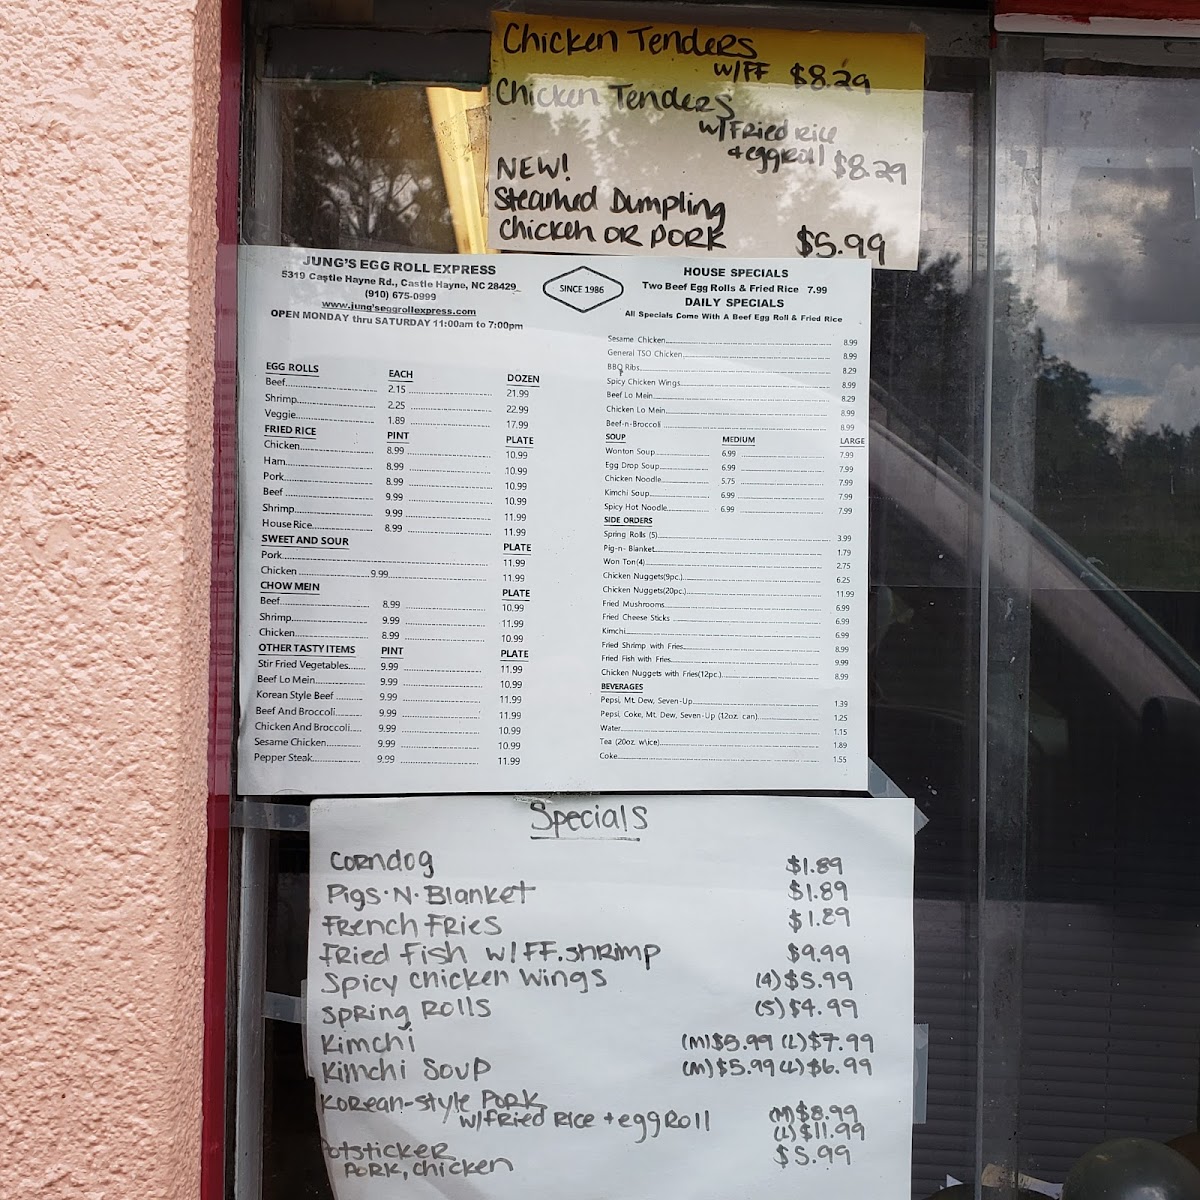 Chicken Tenders
w/FF $8.29
Chicken Tenders
w/Fried rice
+eggroll $8.29
NEW!
Steamed Dumpling
Chicken OR PORK $5.99
JUNG'S EGG ROLL EXPRESS
5319 Castle Hayne Rd., Castle Hayne, NC 28429
(910) 675-0999
www.jung'seggrollexpress.com
OPEN MONDAY thru SATURDAY 11:00am to 7:00pm
SINCE 1986
EGG ROLLS EACH DOZEN
Beef 2.15 21.99
Shrimp 2.25 22.99
Veggie 1.89 17.99
FRIED RICE PINT PLATE
Chicken 8.99 10.99
Ham 8.99 10.99
Pork 8.99 10.99
Beef 9.99 10.99
Shrimp 9.99 11.99
House Rice 8.99 11.99
SWEET AND SOUR PLATE
Pork 11.99
Chicken 9.99 11.99
CHOW MEIN PLATE
Beef 8.99 10.99
Shrimp 9.99 11.99
Chicken 8.99 10.99
OTHER TASTY ITEMS PINT PLATE
Stir Fried Vegetables 9.99 11.99
Beef Lo Mein 9.99 10.99
Korean Style Beef 9.99 11.99
Beef And Broccoli 9.99 11.99
Chicken And Broccoli 9.99 10.99
Sesame Chicken 9.99 10.99
Pepper Steak 9.99 11.99
HOUSE SPECIALS
Two Beef Egg Rolls & Fried Rice 7.99
DAILY SPECIALS
All Specials Come With A Beef Egg Roll & Fried Rice
Sesame Chicken 8.99
General TSO Chicken 8.99
BBQ Ribs 8.29
Spicy Chicken Wings 8.99
Beef Lo Mein 8.29
Chicken Lo Mein 8.99
Beef-n-Broccoli 8.99
SOUP MEDIUM LARGE
Wonton Soup 6.99 7.99
Egg Drop Soup 6.99 7.99
Chicken Noodle 5.75 7.99
Kimchi Soup 6.99 7.99
Spicy Hot Noodle 6.99 7.99
SIDE ORDERS
Spring Rolls (5) 3.99
Pig-n- Blanket 1.79
Won Ton(4) 2.75
Chicken Nuggets(9pc.) 6.25
Chicken Nuggets(20pc.) 11.99
Fried Mushrooms 6.99
Fried Cheese Sticks 6.99
Kimchi 6.99
Fried Shrimp with Fries 8.99
Fried Fish with Fries 9.99
Chicken Nuggets with Fries(12pc.) 8.99
BEVERAGES
Pepsi, Mt. Dew, Seven-Up 1.39
Pepsi, Coke, Mt. Dew, Seven-Up (12oz. can) 1.25
Water 1.15
Tea (20oz. w\ice) 1.89
Coke 1.55
Specials
Corndog $1.89
Pigs-N-Blanket $1.89
French Fries $1.89
Fried Fish w/FF.shrimp $9.99
Spicy Chicken Wings (4) $5.99
Spring Rolls (5) $4.99
Kimchi (M) $5.99 (L) $7.99
Kimchi Soup (M) $5.99 (L) $6.99
Korean-style Pork
w/fried rice + eggroll (M) $8.99
(L) $11.99
otsticker $5.99
Pork, chicken